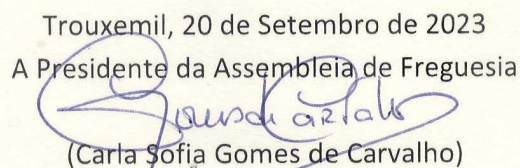 Trouxemil, 20 de Setembro de 2023
A Presidente da Assembleia de Freguesia
(Carla Sofia Gomes de Carvalho)